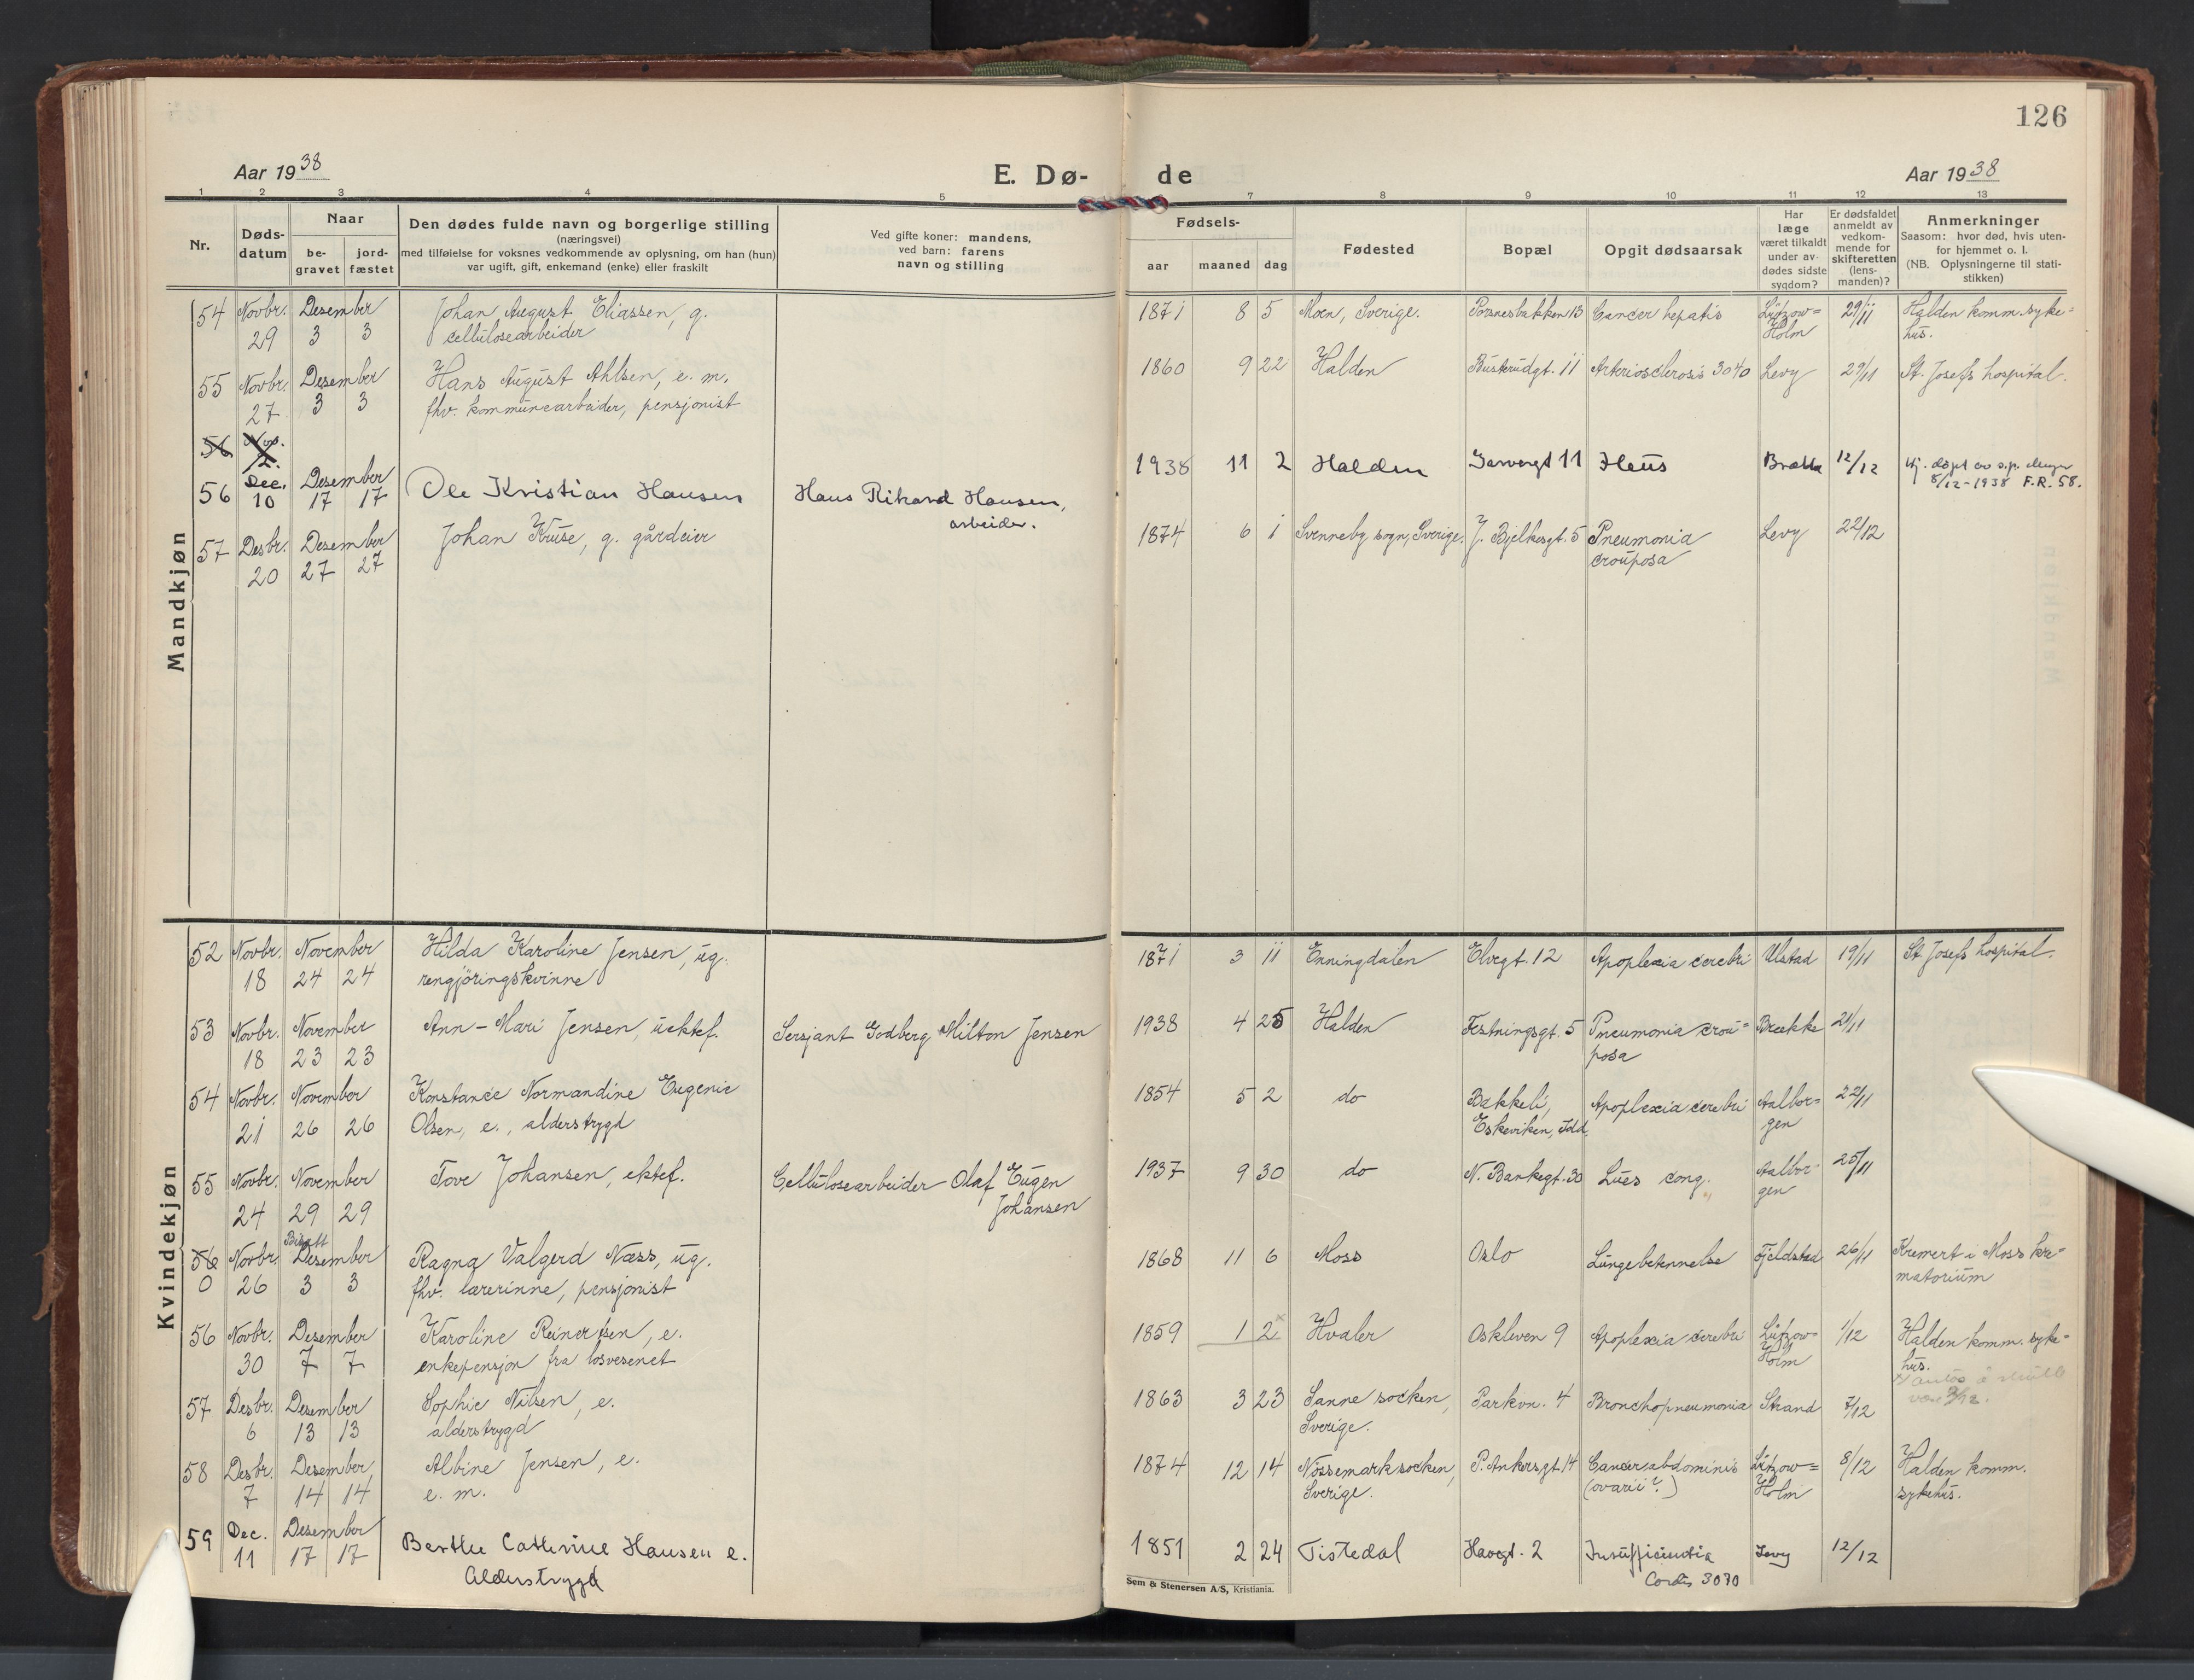 126
Aar 1938
E. Dø-
de
Aar 1938
1 2 3 4 5 7 8 9 10 11 12 13
Nr.
Døds-
datum
Naar
be-
gravet
jord-
fæstet
Den dødes fulde navn og borgerlige stilling
(næringsvei)
med tilføielse for voksnes vedkommende av oplysning, om han (hun)
var ugift, gift, enkemand (enke) eller fraskilt
Ved gifte koner: mandens,
ved barn: farens
navn og stilling
Fødsels-
aar maaned dag
Fødested
Bopæl
Opgit dødsaarsak
Har
læge
været tilkaldt
under av-
dødes sidste
sygdom?
Er dødsfaldet
anmeldt av
vedkom-
mende for
skifteretten
(lens-
manden)?
Anmerkninger
Saasom: hvor død, hvis uten-
for hjemmet o. l.
(NB. Oplysningerne til stati-
stikken)
Mandkjøn
54 Novbr. Desember Johan August Eliassen, g. 1871 8 5 Moen, Sverige. Porsnesbakken 13 Cancer hepatis Lützow= 29/11 Halden komm. syke=
29 3 3 cellulosearbeider Holm hus.
55 Novbr. Desember Hans August Ahlsen, e. m. 1860 9 22 Halden Busterudgt. 11 Arteriosclerosis 3040 Levy 29/11 St. Josefs hospital.
27 3 3 fhv. kommunearbeider, pensjonist
56
56 Dec. Desember Ole Kristian Hansen Hans Rikard Hansen, 1938 11 2 Halden 11 Ileus 12/12 Hj. døpt av s.p.
10 17 17 arbeider. 5/12-1938 F.R. 58.
57 Desbr. Desember Johan Kruse, g. gårdeier 1874 6 1 Svenneby sogn, Sverige. J. Bjelkesgt. 5 Pneumonia Levy 22/12
20 27 27 crouposa
Kvindekjøn
52 Novbr. November Hilda Karoline Jensen, ug. 1871 3 11 Enningdalen Elvegt. 12 Apoplexia cerebri Ulstad 19/11 St. Josefs hospital.
18 24 24 rengjøringskvinne
53 Novbr. November Ann-Mari Jensen, uektef. Sersjant Godberg Milton Jensen 1938 4 25 Halden Festningsgt. 5 Pneumonia crou= Brække 21/11
18 23 23 posa
54 Novbr. November Konstance Normandine Eugenie 1854 5 2 do Bakkeli, Apoplexia cerebri Aalbor- 22/11
21 26 26 Olsen, e., alderstrygd Eskeviken, Idd. gen
55 Novbr. November Tove Johansen, ektef. Cellulosearbeider Olaf Eugen 1937 9 30 do N. Bankegt. 30 Lues cong. Aalbor- 25/11
24 29 29 Johansen gen
Bisatt
56 Novbr. Desember Ragna Valgerd Næss, ug. 1868 11 6 Moss Oslo Lungebetennelse Fjeldstad 26/11 Kremert i Moss kre=
0 26 3 3 fhv. lærerinne, pensjonist matorium
56 Novbr. Desember Karoline Reinertsen, e. 1859 1 2 x Hvaler Oskleven 9 Apoplexia cerebri Lützow= 1/12 Halden komm. syke=
30 7 7 enkepensjon fra losvesenet Holm hus.
57 Desbr. Desember Sophie Nilsen, e. 1863 3 23 Sanne socken, Parkvn. 4 Bronchopneumonia Strand 7/12
6 13 13 alderstrygd Sverige.
58 Desbr. Desember Albine Jensen, e. 1874 12 14 Nössemark socken, P. Ankersgt. 14 Cancer abdominis Lützow= 8/12 Halden komm.
7 14 14 e. m. Sverige. (ovarii?) Holm sykehus.
59 Dec. Desember Berthe Cathrine Hansen e. 1851 2 24 Tistedal Havegt. 2 Insufficientia Levy 12/12
11 17 17 Alderstrygd Cordis 3070
Sem & Stenersen A/S, Kristiania.